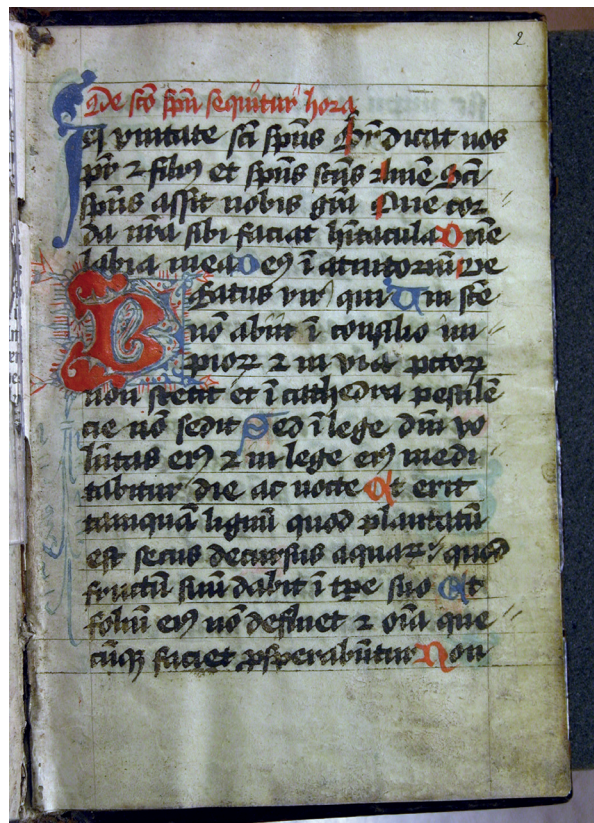 2
De sc̄o spū sequitur hora
In vnitate sc̄i sp̄us Bn̄dicat nos
pr̄ ⁊ filiꝰ et sp̄us sc̄us Amē Sc̄i
sp̄us assit nobis grā Que cor
da nr̄a sibi faciat hītacula Dn̄e
labia mea Deꝰ ī adiutoriū
Beatus vir qui
nō abiit ī consilio im
pioꝝ ⁊ in via pctoꝝ
non stetit et ī cathedra pestilē
cie nō sedit Sed ī lege dn̄i vo
lūtas eiꝰ ⁊ in lege eiꝰ medi
tabitur die ac nocte Et erit
tamquā lignū quod plantatū
est secus decursus aquaꝝ quod
fructū suū dabit ī tp̄e suo Et
foliū eiꝰ nō defluet ⁊ oīa que
cūqꝫ faciet ꝓsperabūtur Non